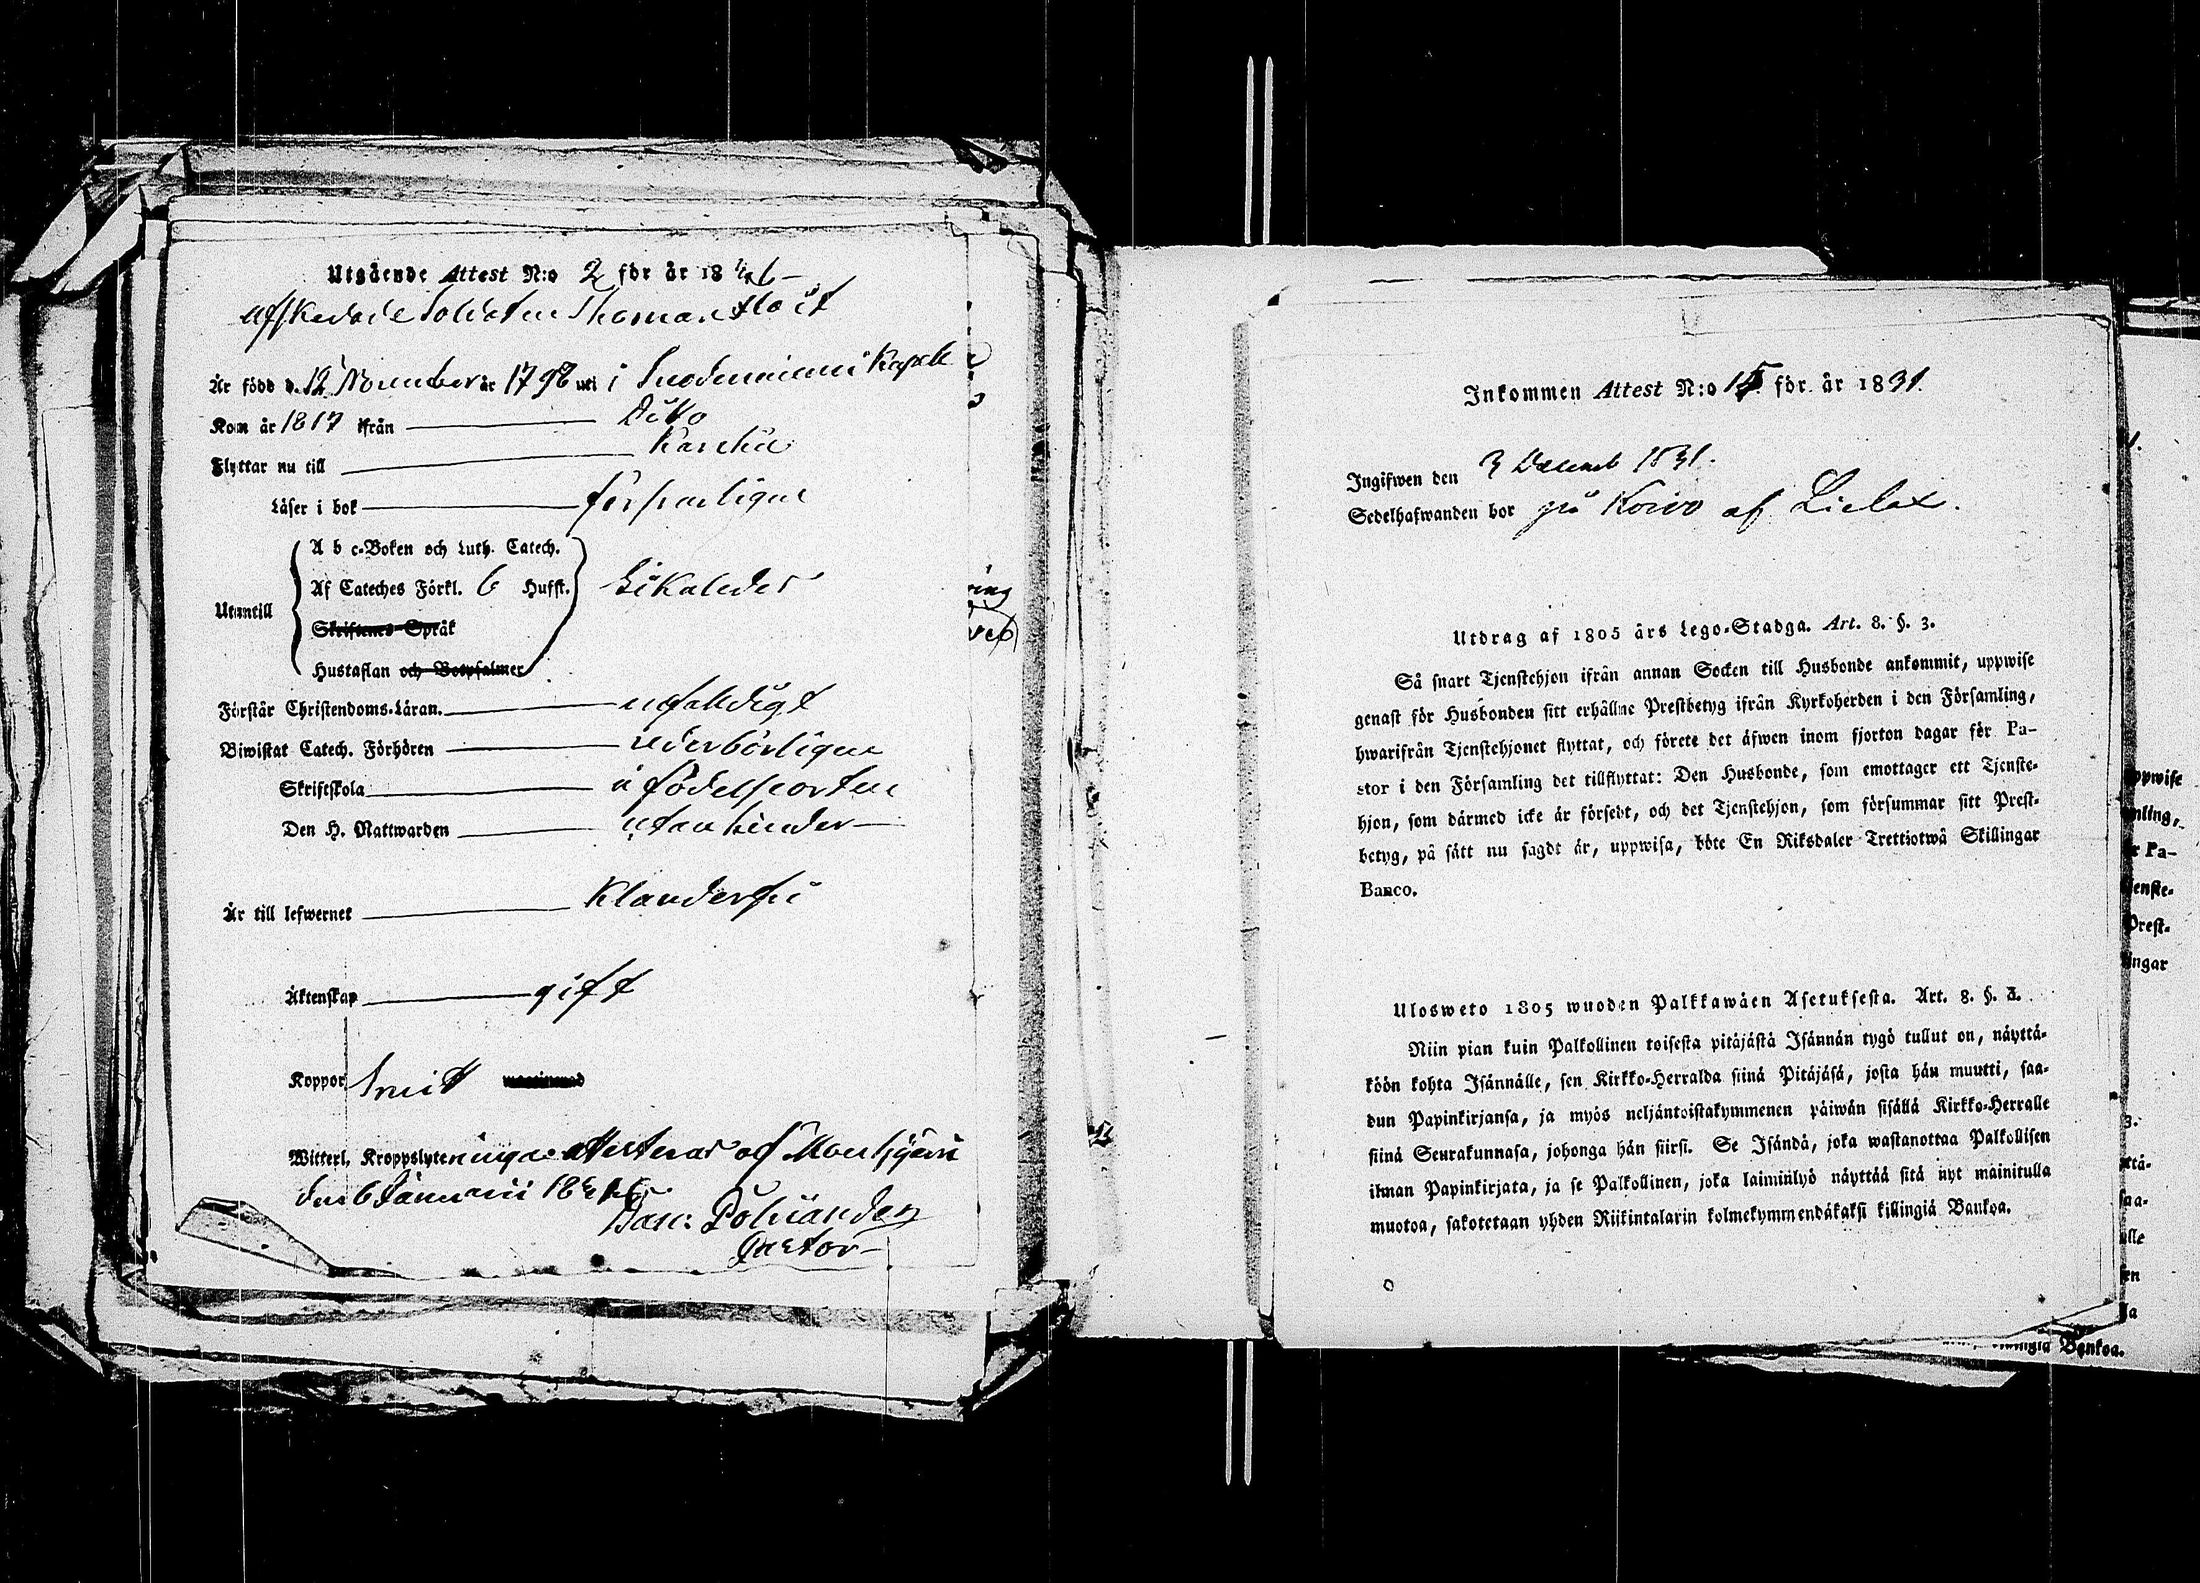 Utgående Attest N:o 2 för år 18
Afskedade Soldaten Thomas
Är född d. 12 November år 1798 uti i Suodenniemi Kapell
Kom år 1817 ifrån Dito
Flyttar nu till Karckü
Läser i bok försvarligen
Utantill
A b c-Boken och Luth. Catech.
Af Cateches Förkl. 6 Hufst. Likaledes
Skriftenes Språk
Hustaflan och Botpsalmer
Förstår Christendoms-Läran. nöjaktigt
Biwistat Catech. Förhören vederbörligen
Skriftskola i födelseorten
Den H. Nattwarden utan hinder
Är till lefwernet Klanderfri
Äktenskap gift
Koppor
Witterl. Kroppslyten inga attesteras af Mouhijärvi
den 6 Januarii
Polviander
Pastor
ing
Inkommen Attest N:o 15 för år 1831.
Ingifwen den 3 Decemb 1831.
Sedelhafwanden bor på Koivo af Lielax.
Utdrag af 1805 års Lego-Stadga. Art. 8. §. 3.
Så snart Tjenstehjon ifrån annan Socken till Husbonde ankommit, uppwise
genast för Husbonden sitt erhållne Prestbetyg ifrån Kyrkoherden i den Församling,
hwarifrån Tjenstehjonet flyttat, och förete det äfwen inom fjorton dagar för Pa-
stor i den Församling det tillflyttat: Den Husbonde, som emottager ett Tjenste-
hjon, som därmed icke är försedt, och det Tjenstehjon, som försummar sitt Prest-
betyg, på sätt nu sagdt är, uppwisa, böte En Riksdaler Trettiotwå Skillingar
Banco.
Ulosweto 1805 wuoden Palkkawäen Asetuksesta. Art. 8. §. 3.
Niin pian kuin Palkollinen toisesta pitäjästä Isännän tygö tullut on, näyttä-
köön kohta Isännälle, sen Kirkko-Herralda siinä Pitäjäsä, josta hän muutti, saa-
dun Papinkirjansa, ja myös neljäntoistakymmenen päiwän sisällä Kirkko-Herralle
siinä Seurakunnasa, johonga hän siirsi. Se Isändä, joka wastanottaa Palkollisen
ilman Papinkirjata, ja se Palkollinen, joka laiminlyö näyttää sitä nyt mainitulla
muotoa, sakotetaan yhden Riikintalarin kolmekymmendäkaksi killingiä Bankoa.
ppwise
mling,
r Pa-
enste-
Prest-
ingar
3.
ttä-
saa-
alle
en
la
Bankoa.